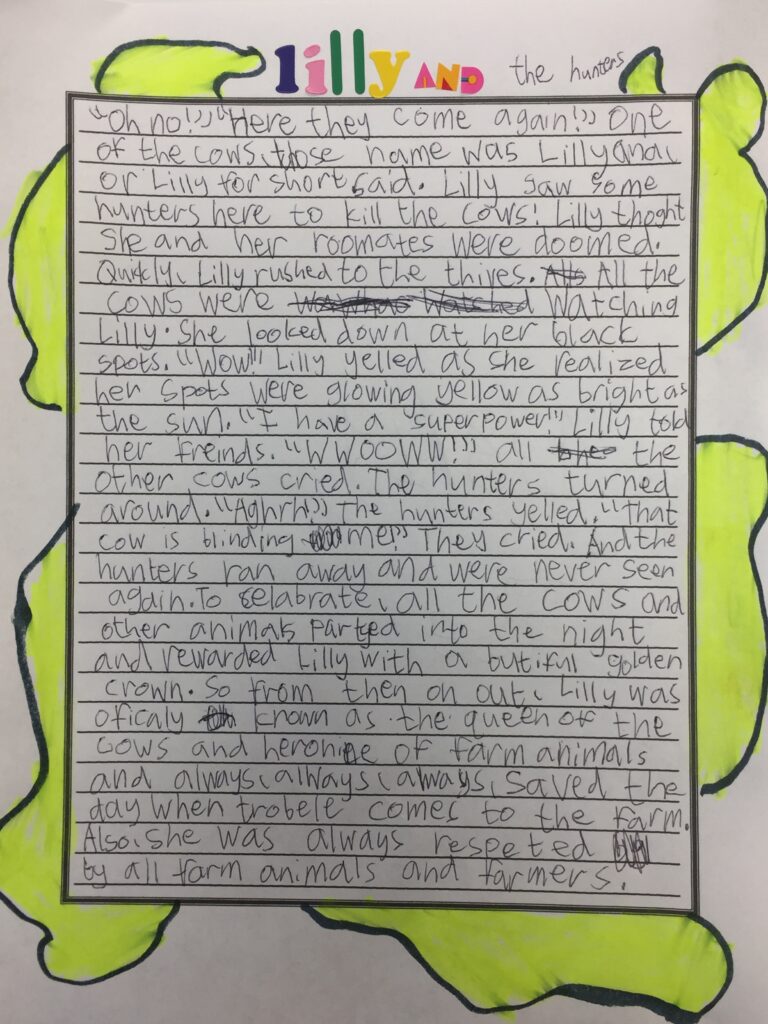 lilly AND the hunters
"Oh no!" "Here they come again!" One
of the cows, those name was Lillyana,
or Lilly for short, said. Lilly saw some
hunters here to kill the cows! Lilly thoght
She and her roomates were doomed.
Quickly, Lilly rushed to the thives. All the
cows were watching
Lilly. She looked down at her black
spots. "Wow!" Lilly yelled as she realized
her spots were glowing yellow as bright as
the sun. "I have a superpower!" Lilly told
her freinds. "WWOOWW!" all the
other cows cried. The hunters turned
around. "Aghrh!" The hunters yelled. "That
cow is blinding me!" They cried. And the
hunters ran away and were never seen
again. To selabrate, all the cows and
other animals parted into the night
and rewarded Lilly with a butiful golden
crown. So from then on out, Lilly was
oficaly krown as the queen of the
cows and heronice of farm animals
and always, always, always, saved the
day when trobele comes to the farm.
Also, she was always respeted
by all farm animals and farmers.